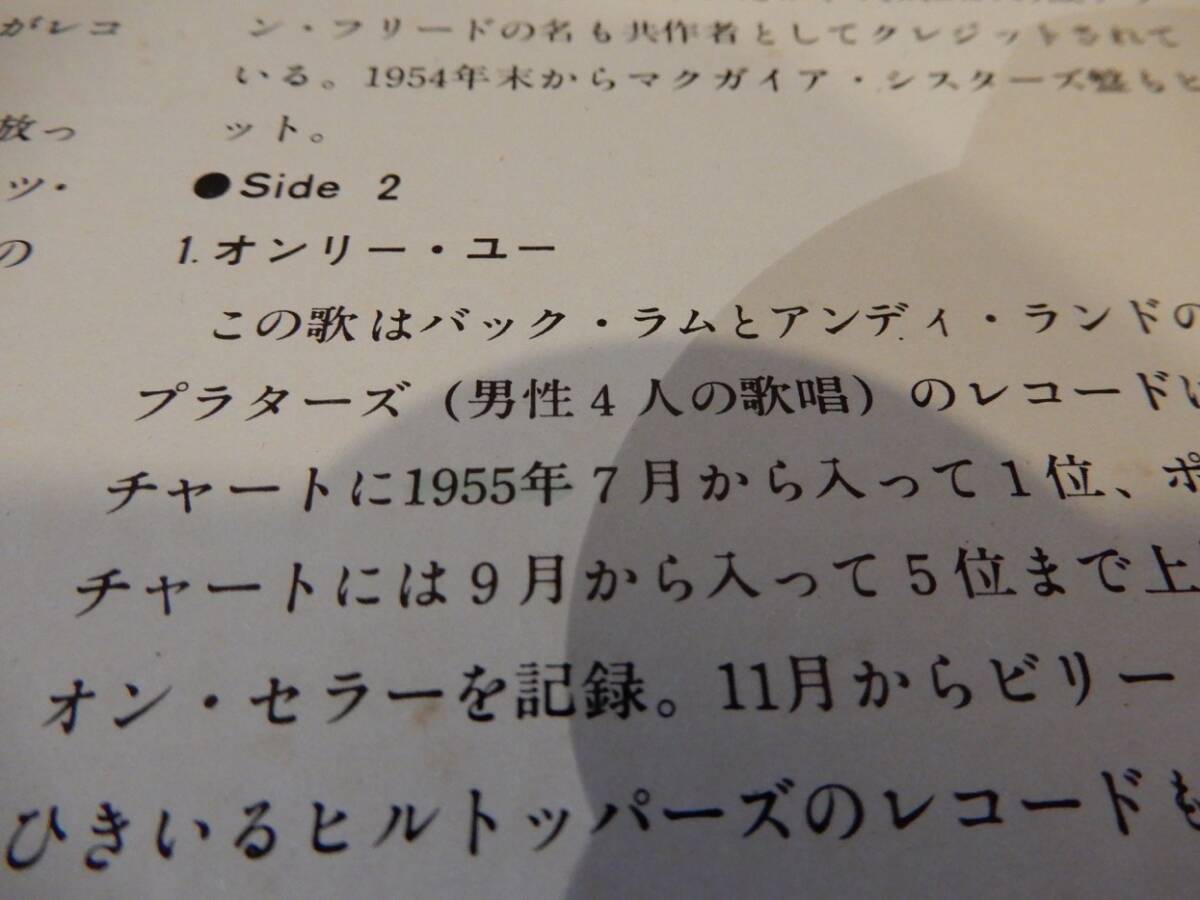 がレコ
放っ
ツ・
の
ン・フリードの名も共作者としてクレジットされて
いる。1954年末からマクガイア・シスターズ盤もヒ
ット。
●Side 2
1.オンリー・ユー
この歌はバック・ラムとアンディ・ランドの
プラターズ(男性4人の歌唱)のレコードは
チャートに1955年7月から入って1位、ポ
チャートには9月から入って5位まで上
オン・セラーを記録。11月からビリー・
ひきいるヒルトッパーズのレコードも